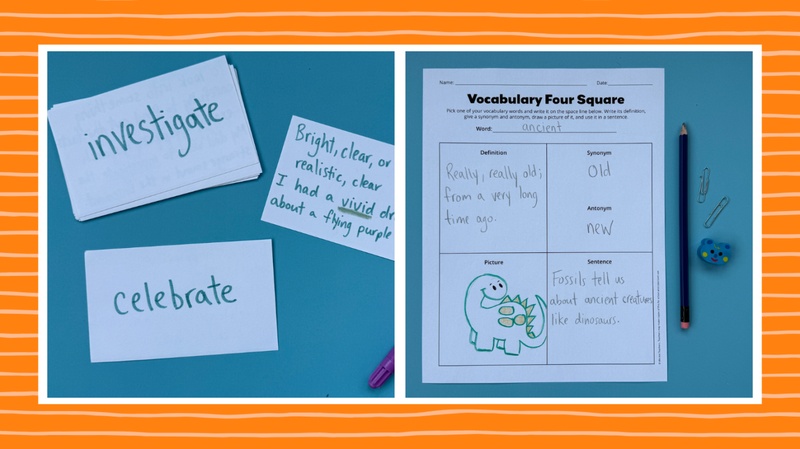 investigate
Bright, clear, or
realistic, clear
I had a vivid
about a flying purple
celebrate
Name: Date:
Vocabulary Four Square
Pick one of your vocabulary words and write it on the space line below. Write its definition,
give a synonym and antonym, draw a picture of it, and use it in a sentence.
Word: ancient
Definition
Really, really old;
from a very long
time ago.
Synonym
Old
Antonym
new
Picture
Sentence
Fossils tell us
about ancient creatures
like dinosaurs.